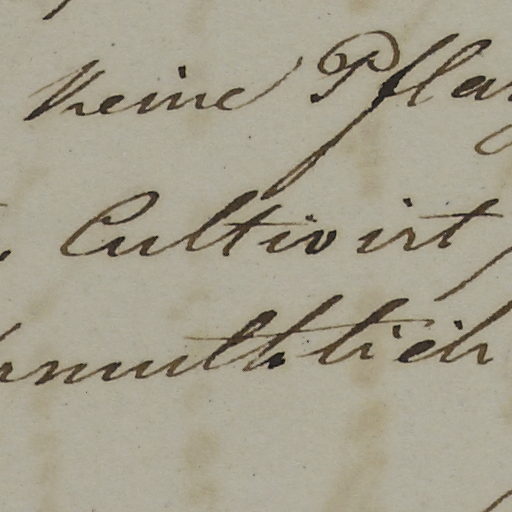 keine Pfla
Cultivirt
rmuthlich